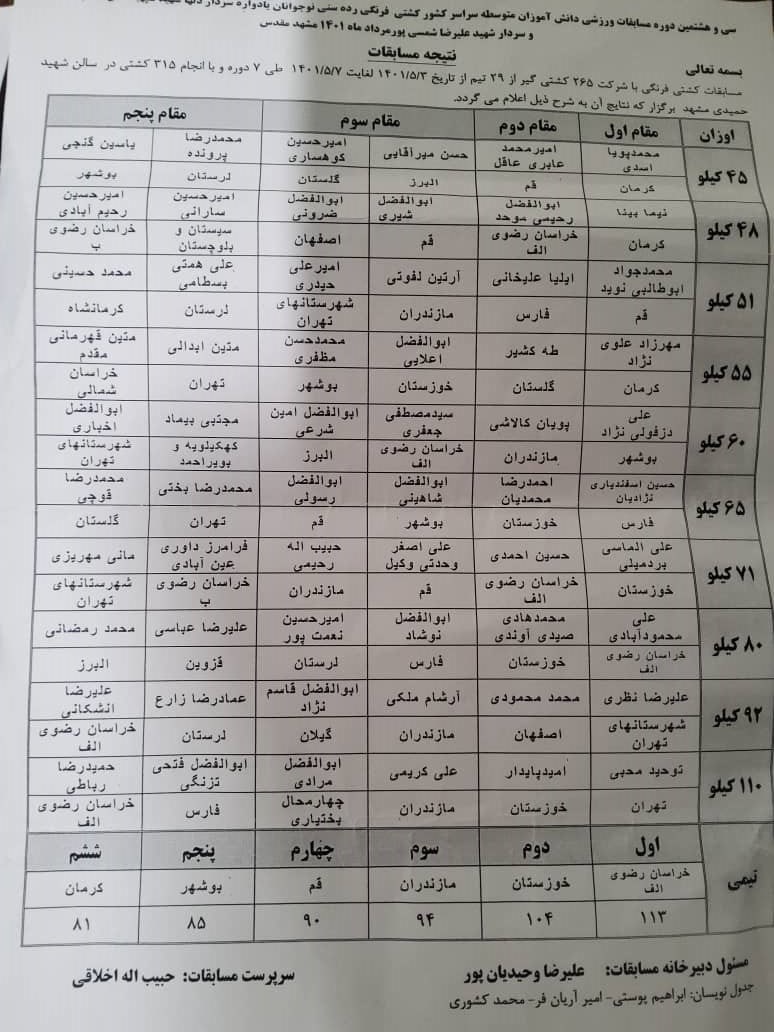 سی و هشتمین دوره مسابقات ورزشی دانش آموزان متوسطه سراسر کشور کشتی فرنگی رده سنی نوجوانان یادواره سردار دلها شهید
و سردار شهید علیرضا شمسی پور مرداد ماه ۱۴۰۱ مشهد مقدس
نتیجه مسابقات
بسمه تعالی
مسابقات کشتی فرنگی با شرکت ۲۶۵ کشتی گیر از ۲۹ تیم از تاریخ ۱۴۰۱/۵/۳ لغایت ۱۴۰۱/۵/۷ طی ۷ دوره و با انجام ۳۱۵ کشتی در سالن شهید
حمیدی مشهد برگزار که نتایج آن به شرح ذیل اعلام می گردد.
اوزان مقام اول مقام دوم مقام سوم مقام پنجم
۴۵ کیلو
محمدپویا اسدی امیرمحمد عابری عاقل حسن میرآقایی امیرحسین کوهساری محمدرضا پرونده یاسین گنجی
کرمان قم البرز گلستان لرستان بوشهر
۴۸ کیلو
نیما بینا ابوالفضل رحیمی موحد ابوالفضل شیری ابوالفضل ضرونی امیرحسین سارانی امیرحسین رحیم آبادی
کرمان خراسان رضوی الف قم اصفهان سیستان و بلوچستان خراسان رضوی ب
۵۱ کیلو
محمدجواد ابوطالبی نوید ایلیا علیخانی آرتین لفوتی امیرعلی حیدری علی همتی بسطامی محمد حسینی
قم فارس مازندران شهرستانهای تهران لرستان کرمانشاه
۵۵ کیلو
مهرزاد علوی نژاد طه کشیر ابوالفضل اعلایی محمدحسن مظفری متین ابدالی متین قهرمانی مقدم
کرمان گلستان خوزستان بوشهر تهران خراسان شمالی
۶۰ کیلو
علی دزفولی نژاد پویان کالاشی سیدمصطفی جعفری ابوالفضل امین شرعی مجتبی بیماد ابوالفضل اخباری
بوشهر مازندران خراسان رضوی الف البرز کهکیلویه و بویراحمد شهرستانهای تهران
۶۵ کیلو
حسین اسفندیاری نژادیان احمدرضا محمدیان ابوالفضل شاهینی ابوالفضل رسولی محمدرضا بختی محمدرضا قوچی
فارس خوزستان بوشهر قم تهران گلستان
۷۱ کیلو
علی الماسی بردمیلی حسین احمدی علی اصغر وحدتی وکیل حبیب اله رحیمی فرامرز داوری عین آبادی مانی مهریزی
خوزستان خراسان رضوی الف قم مازندران خراسان رضوی ب شهرستانهای تهران
۸۰ کیلو
علی محمودآبادی محمدهادی صیدی آوندی ابوالفضل نوشاد امیرحسین نعمت پور علیرضا عباسی محمد رمضانی
خراسان رضوی الف خوزستان فارس لرستان قزوین البرز
۹۲ کیلو
علیرضا نظری محمد محمودی آرشام ملکی ابوالفضل قاسم نژاد عمادرضا زارع علیرضا انشکانی
شهرستانهای تهران اصفهان مازندران گیلان لرستان خراسان رضوی الف
۱۱۰ کیلو
توحید محبی امیدپایدار علی کریمی ابوالفضل مرادی ابوالفضل فتحی تزنگی حمیدرضا رباطی
تهران خوزستان مازندران چهارمحال بختیاری فارس خراسان رضوی الف
تیمی
اول دوم سوم چهارم پنجم ششم
خراسان رضوی الف خوزستان مازندران قم بوشهر کرمان
۱۱۳ ۱۰۴ ۹۴ ۹۰ ۸۵ ۸۱
مسئول دبیرخانه مسابقات: علیرضا وحیدیان پور سرپرست مسابقات: حبیب اله اخلاقی
جدول نویسان: ابراهیم پوستی- امیر آریان فر- محمد کشوری